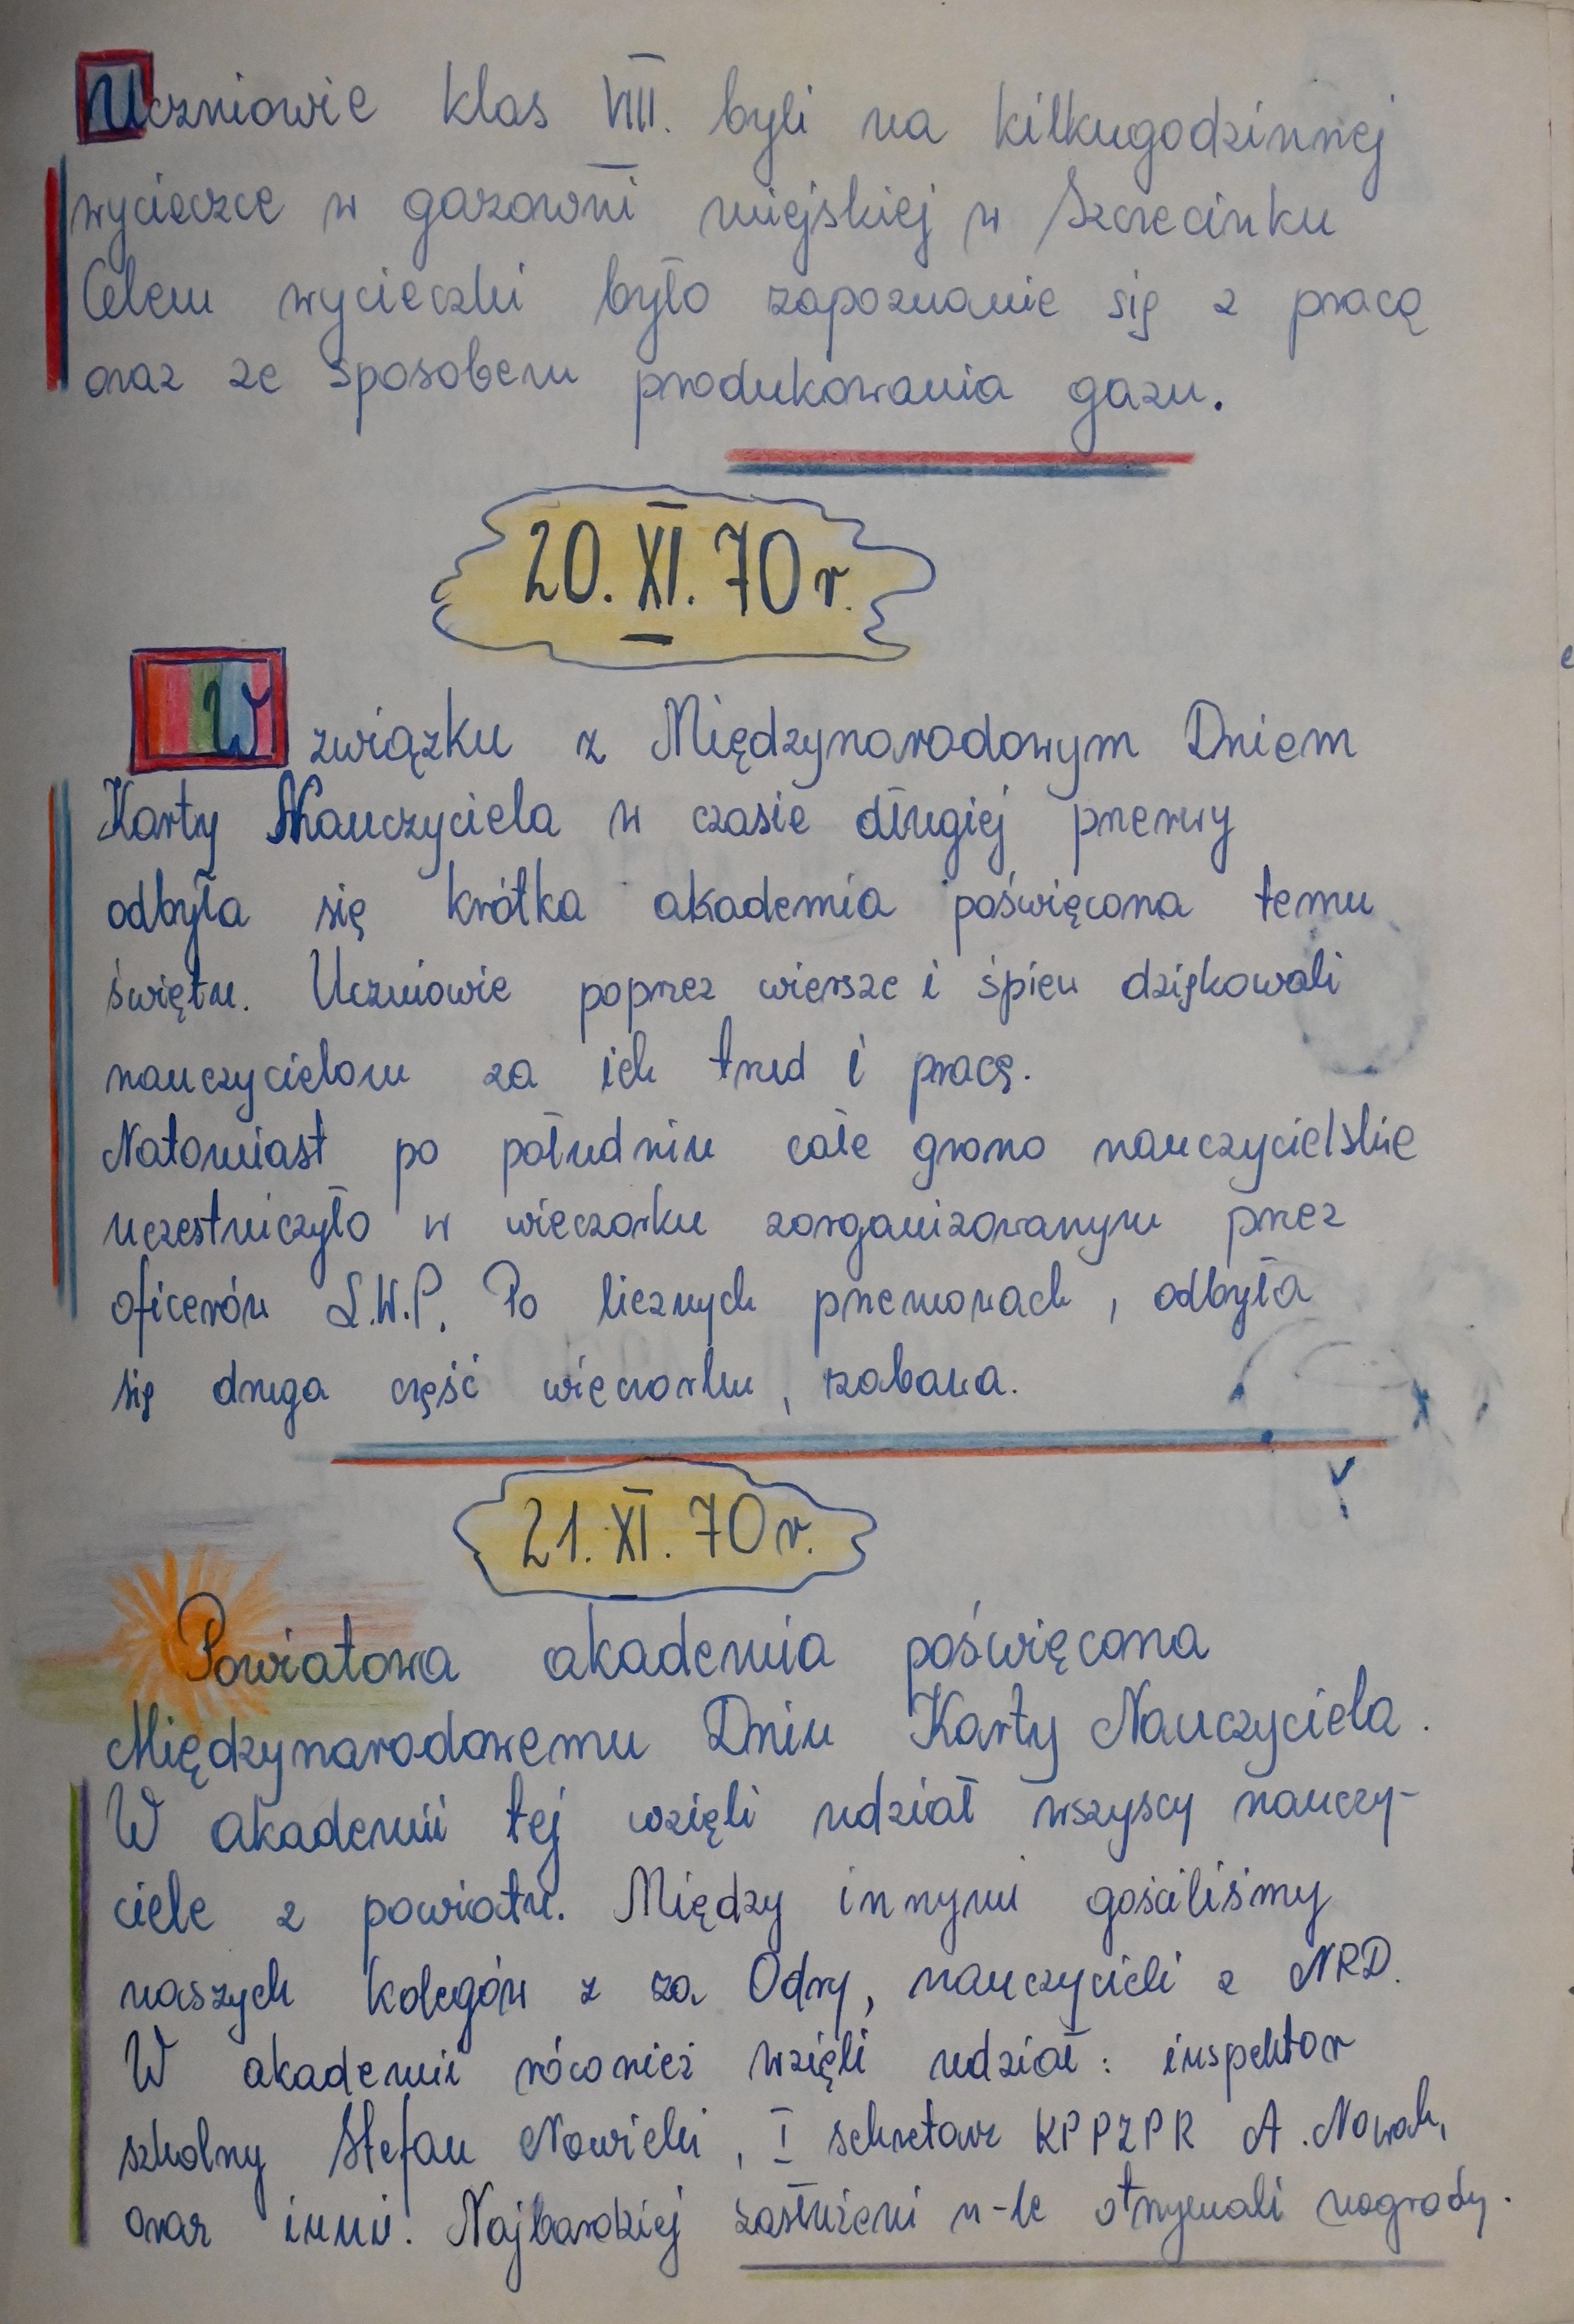 Uczniowie klas VIII. byli na kilkugodzinnej
wycieczce w gazowni miejskiej w Szczecinku
Celem wycieczki było zapoznanie się z pracą
oraz ze sposobem produkowania gazu.
20. XI. 70 r.
W związku z Międzynarodowym Dniem
Karty Nauczyciela w czasie długiej przerwy
odbyła się krótka akademia poświęcona temu
świętu. Uczniowie poprzez wiersze i śpiew dziękowali
nauczycielom za ich trud i pracę.
Natomiast po południu całe grono nauczycielskie
uczestniczyło w wieczorku zorganizowanym przez
oficerów L.W.P. Po licznych przemowach, odbyła
się druga część wieczorku, zabawa.
21. XI. 70 r.
Powiatowa akademia poświęcona
Międzynarodowemu Dniu Karty Nauczyciela.
W akademii tej wzięli udział wszyscy nauczy-
ciele z powiatu. Między innymi gościliśmy
naszych kolegów z za Odry, nauczycieli z NRD.
W akademii również wzięli udział: inspektor
szkolny Stefan Nowicki, I sekretarz KPPZPR A. Nowak,
oraz inni. Najbardziej zasłużeni n-le otrzymali nagrody.